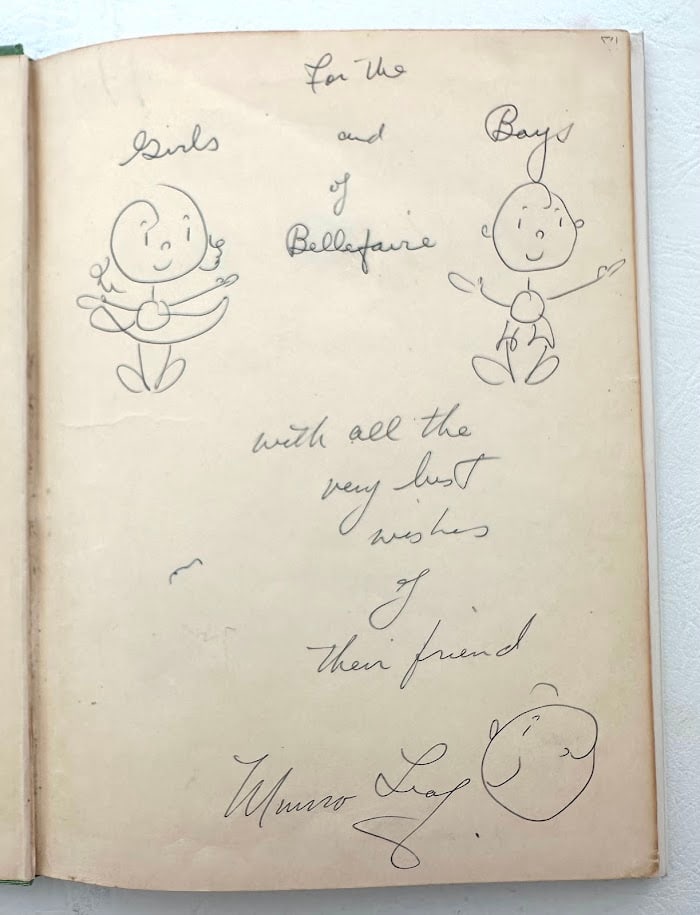 For the
Girls and Boys
of
Bellefaire
with all the
very best
wishes
of
their friend
Munro Leaf